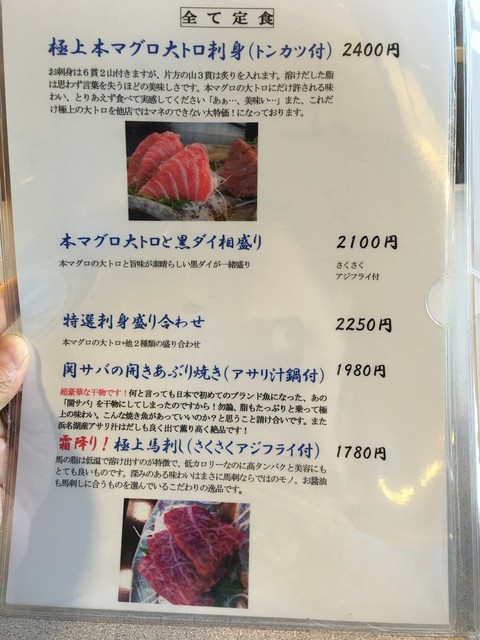 全て定食
極上本マグロ大トロ刺身(トンカツ付) 2400円
お刺身は6貫2山付きますが、片方の山3貫は炙りを入れます。溶けだした脂
は思わず言葉を失うほどの美味しさです。本マグロの大トロにだけ許される味
わい、とりあえず食べて実感してください「あぁ…、美味い…」また、これだ
け極上の大トロを他店ではマネのできない大特価！になっております。
本マグロ大トロと黒ダイ相盛り 2100円
本マグロの大トロと旨味が素晴らしい黒ダイが一緒盛り
さくさく
アジフライ付
特選刺身盛り合わせ 2250円
本マグロの大トロ+他2種類の盛り合わせ
関サバの開きあぶり焼き(アサリ汁鍋付) 1980円
超豪華な干物です！何と言っても日本で初めてのブランド魚になった、あの
「関サバ」を干物にしてしまったのですから！勿論、脂もたっぷりと乗って極
上の味わい。こんな焼き魚があっていいのか？と思うこと請け合いです。また
浜名湖産アサリ汁はだしも良く出て薫り高く絶品です！
霜降り！極上馬刺し(さくさくアジフライ付) 1780円
馬の脂は低温で溶け出すのが特徴で、低カロリーなのに高タンパクと美容にも
とても良いものです。深みのある味わいはまさに馬刺ならではのモノ。お醤油
も馬刺しに合うものを選んでいるこだわりの逸品です。